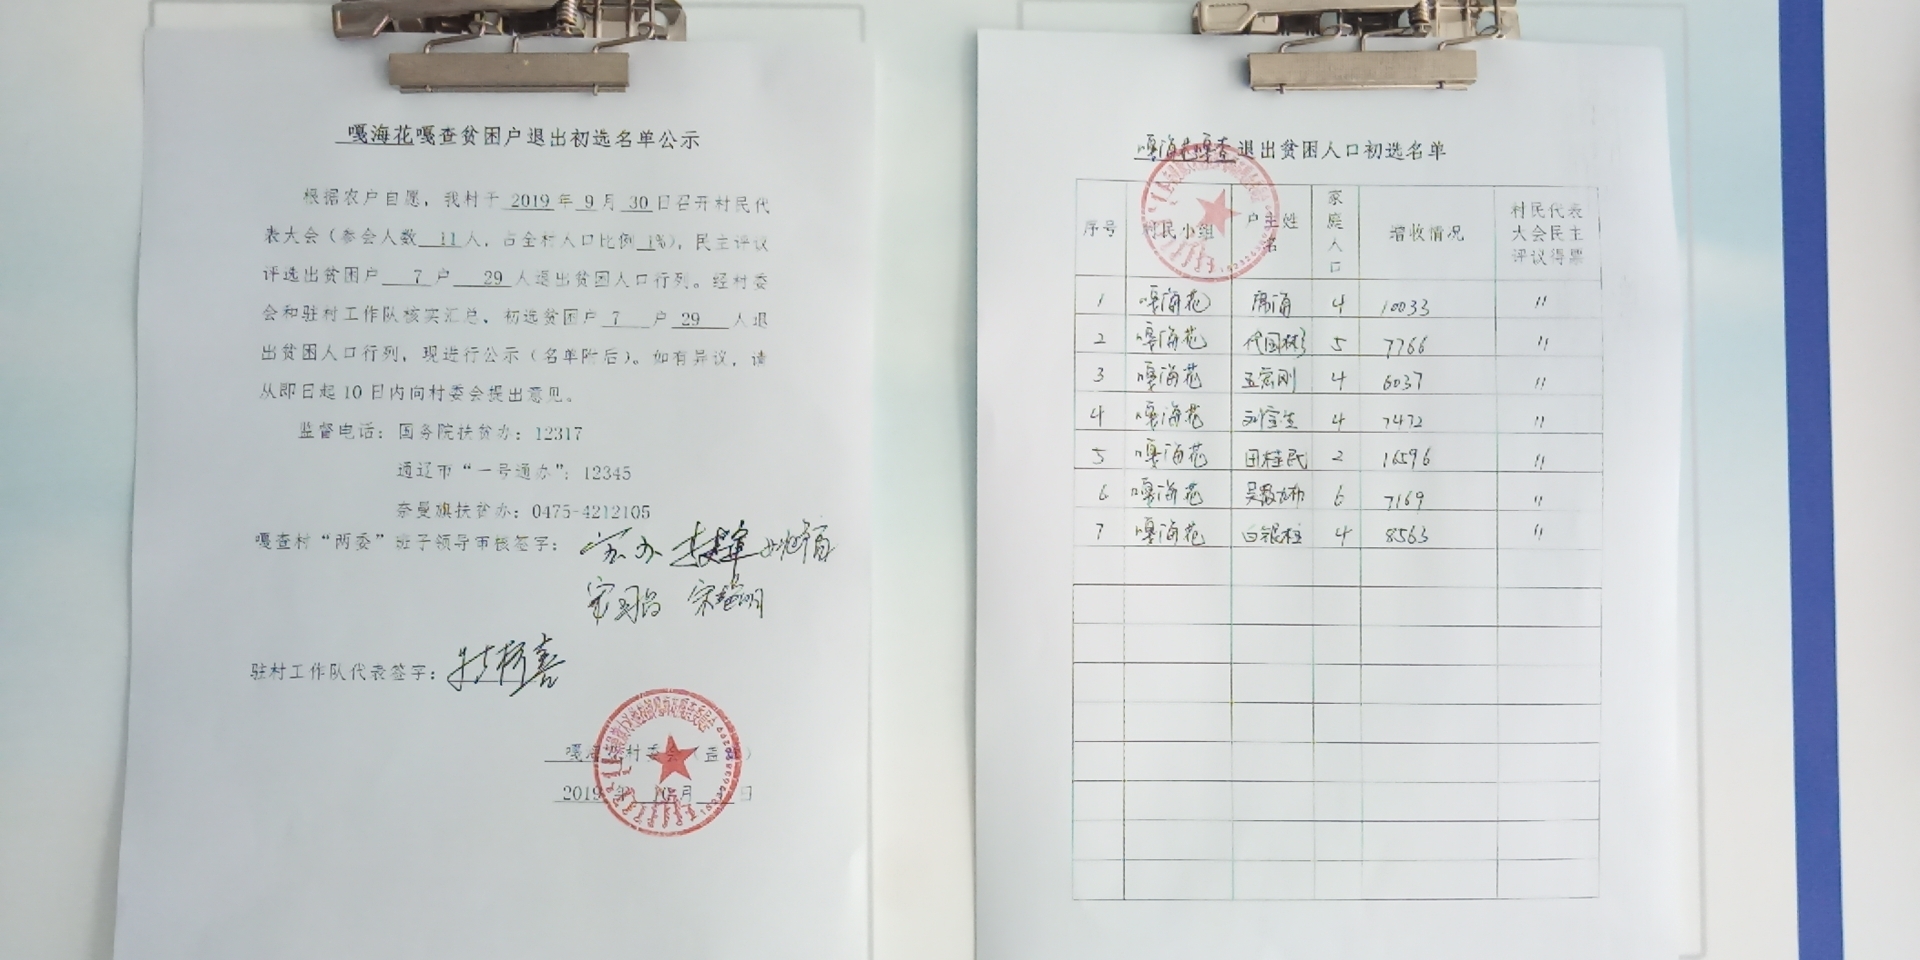 嘎海花嘎查贫困户退出初选名单公示
根据农户自愿，我村于 2019 年 9 月 30 日召开村民代
表大会（参会人数 11 人，占全村人口比例 1%），民主评议
评选出贫困户 7 户 29 人退出贫困人口行列。经村委
会和驻村工作队核实汇总，初选贫困户 7 户 29 人退
出贫困人口行列，现进行公示（名单附后）。如有异议，请
从即日起 10 日内向村委会提出意见。
监督电话：国务院扶贫办：12317
通辽市“一号通办”：12345
奈曼旗扶贫办：0475-4212105
嘎查村“两委”班子领导审核签字：
驻村工作队代表签字：
嘎海花村委会（盖章）
2019 年 10 月 日
嘎海花嘎查退出贫困人口初选名单
序号 村民小组 户主姓名 家庭人口 增收情况 村民代表大会民主评议得票
1 嘎海花 4 10033 11
2 嘎海花 代国彬 5 7766 11
3 嘎海花 4 6037 11
4 嘎海花 刘宝生 4 7472 11
5 嘎海花 田桂民 2 16596 11
6 嘎海花 6 7169 11
7 嘎海花 白银柱 4 8563 11